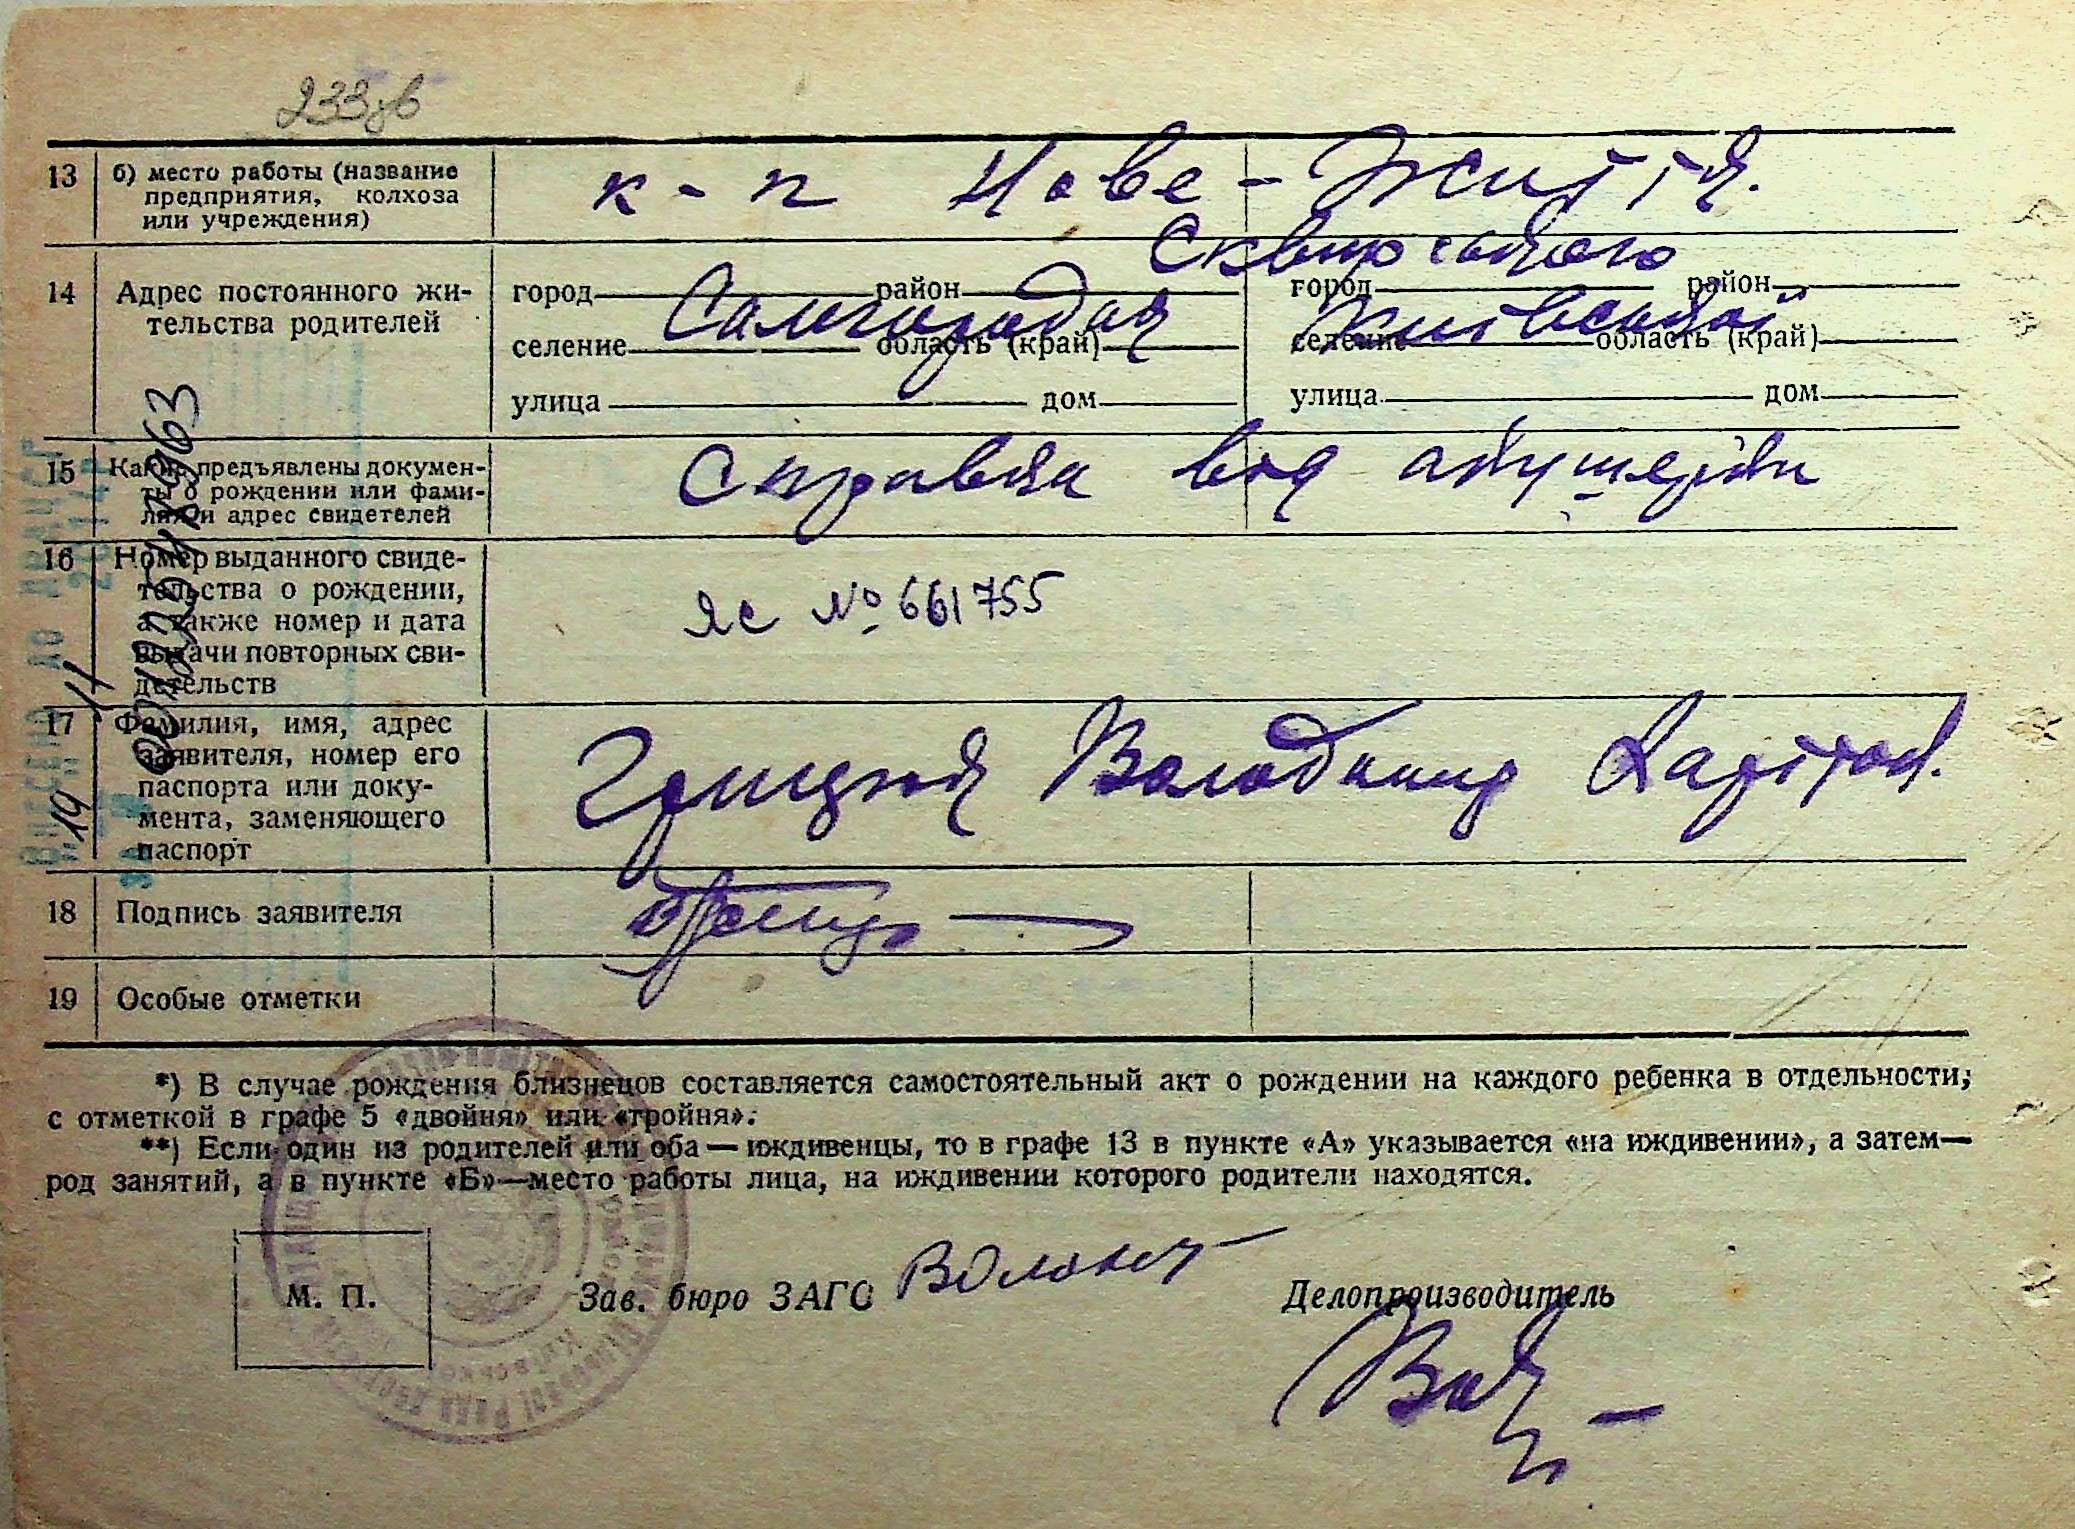 233зв
13 б) место работы (название предприятия, колхоза или учреждения)
к-п Нове-Життя.
14 Адрес постоянного жительства родителей
Сквирського
город район город район
Самгородок Київської
селение область (край) селение область (край)
улица дом улица дом
15 Какие предъявлены документы о рождении или фамилия и адрес свидетелей
Справка від акушерки
16 Номер выданного свидетельства о рождении, а также номер и дата выдачи повторных свидетельств
ЯС № 661755
17 Фамилия, имя, адрес заявителя, номер его паспорта или документа, заменяющего паспорт
Володимир
18 Подпись заявителя
19 Особые отметки
*) В случае рождения близнецов составляется самостоятельный акт о рождении на каждого ребенка в отдельности,
с отметкой в графе 5 «двойня» или «тройня».
**) Если один из родителей или оба — иждивенцы, то в графе 13 в пункте «А» указывается «на иждивении», а затем—
род занятий, а в пункте «Б»—место работы лица, на иждивении которого родители находятся.
М. П. Зав. бюро ЗАГС Делопроизводитель